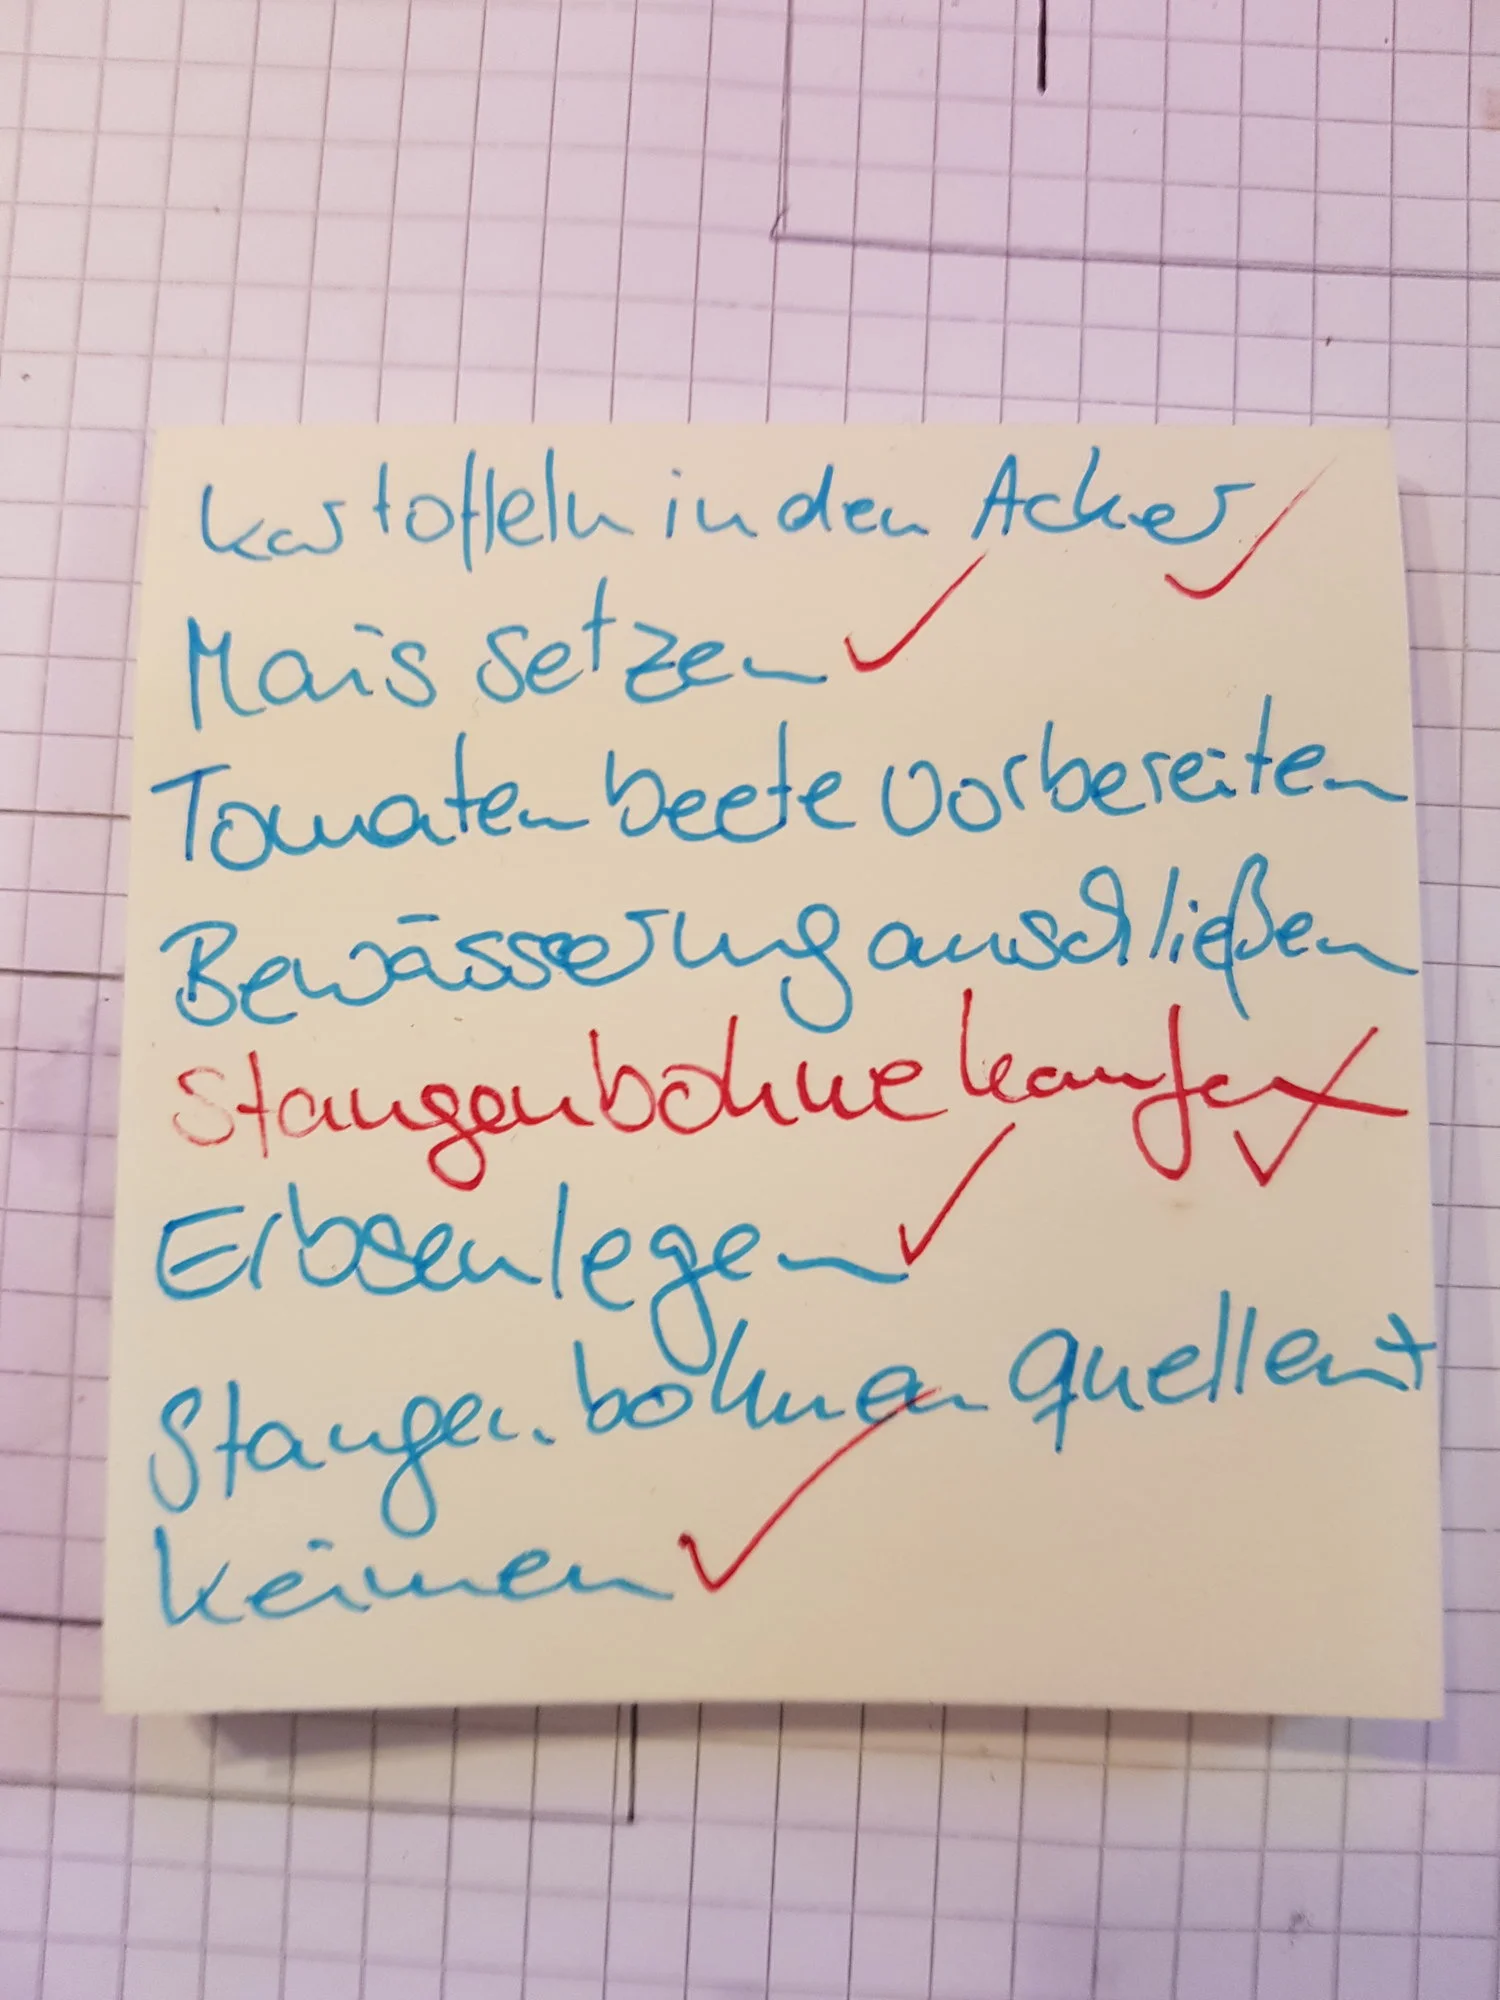 Kartoffeln in den Acker ✓
Mais setzen ✓
Tomatenbeete vorbereiten
Bewässerung anschließen
Stangenbohne kaufen ✓
Erbsen legen ✓
Stangenbohnen quellen +
keimen ✓